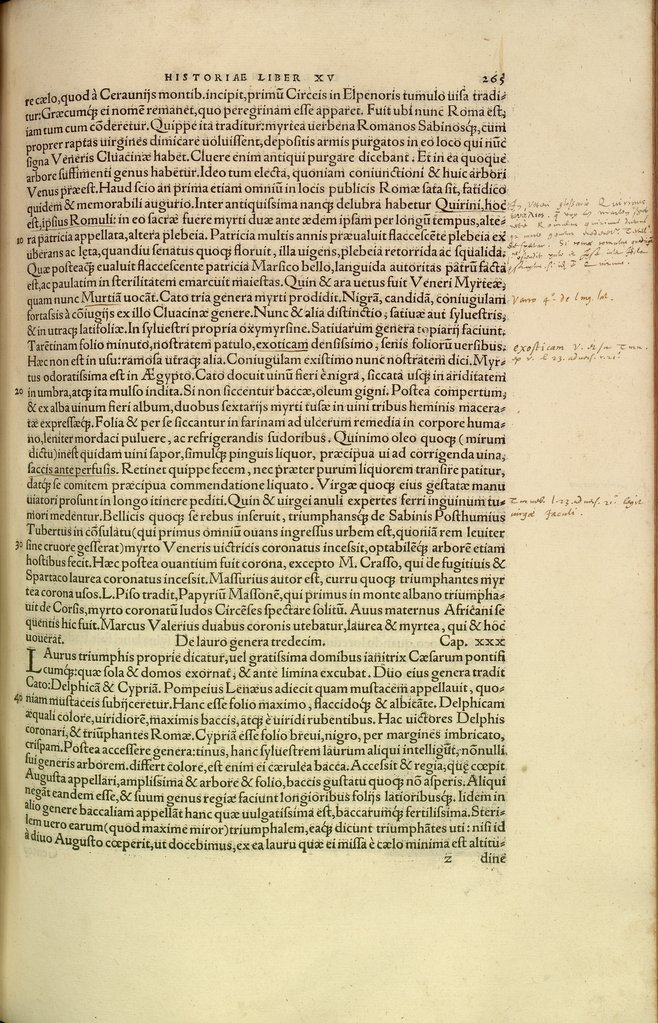 HISTORIAE LIBER XV 265
re cælo, quod à Cerauniis montib. incipit, primũ Circeis in Elpenoris tumulo uisa tradi-
tur: Græcumq; ei nomẽ remanet, quo peregrinam esse apparet. Fuit ubi nunc Roma est,
iam tum cum cõderetur. Quippe ita traditur: myrtea uerbena Romanos Sabinosq;, cùm
propter raptas uirgines dimicare uoluissent, depositis armis purgatos in eo loco qui nũc
signa Veneris Cluacinæ habet. Cluere enim antiqui purgare dicebant. Et in ea quoque
arbore suffimenti genus habetur. Ideo tum electa, quoniam coniunctioni & huic arbori
Venus præest. Haud scio an prima etiam omniũ in locis publicis Romæ sata sit, fatidico
quidem & memorabili augurio. Inter antiquissima nanq; delubra habetur Quirini, hoc
est, ipsius Romuli: in eo sacræ fuere myrti duæ ante ædem ipsam per longũ tempus, alte-
10 ra patricia appellata, altera plebeia. Patricia multis annis præualuit flaccescẽte plebeia ex
uberans ac lęta, quandiu senatus quoq; floruit, illa uigens, plebeia retorrida ac squalida.
Quæ posteaq̃ eualuit flaccescente patricia Marsico bello, languida autoritas patrũ facta
est, ac paulatim in sterilitatem emarcuit maiestas. Quin & ara uetus fuit Veneri Myrteæ,
quam nunc Murtiã uocãt. Cato tria genera myrti prodidit. Nigrã, candidã, coniugulam
fortassis à cõiugijs ex illo Cluacinæ genere. Nunc & alia distinctio, satiuæ aut syluestris,
& in utraq; latifoliæ. In syluestri propria oxymyrsine. Satiuarum genera topiarij faciunt.
Tarẽtinam folio minuto, nostratem patulo, exoticam densissimo, senis foliorũ uersibus.
Hæc non est in usu: ramosa utraq; alia. Coniugulam existimo nunc nostratem dici. Myr-
tus odoratissima est in Ægypto. Cato docuit uinũ fieri è nigra, siccata usq; in ariditatem
20 in umbra, atq; ita mulso indita. Si non siccentur baccæ, oleum gigni. Postea compertum,
& ex alba uinum fieri album, duobus sextarijs myrti tusæ in uini tribus heminis macera-
tæ expressæq;. Folia & per se siccantur in farinam ad ulcerum remedia in corpore huma-
no, leniter mordaci puluere, ac refrigerandis sudoribus. Quinimo oleo quoq; (mirum
dictu) inest quidam uini sapor, simulq; pinguis liquor, præcipua ui ad corrigenda uina,
saccis ante perfusis. Retinet quippe fecem, nec præter purum liquorem transire patitur,
datq; se comitem præcipua commendatione liquato. Virgæ quoq; eius gestatæ manu
uiatori prosunt in longo itinere pediti. Quin & uirgei anuli expertes ferri inguinum tu-
mori medentur. Bellicis quoq; se rebus inseruit, triumphansq; de Sabinis Posthumius
Tubertus in cõsulatu (qui primus omniũ ouans ingressus urbem est, quoniã rem leuiter
30 sine cruore gesserat) myrto Veneris uictricis coronatus incessit, optabilẽq; arborẽ etiam
hostibus fecit. Hæc postea ouantium fuit corona, excepto M. Crasso, qui de fugitiuis &
Spartaco laurea coronatus incessit. Massurius autor est, curru quoq; triumphantes myr
tea corona usos. L. Piso tradit, Papyriũ Massonẽ, qui primus in monte albano triumpha-
uit de Corsis, myrto coronatũ ludos Circẽses spectare solitũ. Auus maternus Africani se
quentis hic fuit. Marcus Valerius duabus coronis utebatur, laurea & myrtea, qui & hoc
uouerat. De lauro genera tredecim. Cap. XXX
Laurus triumphis proprie dicatur, uel gratissima domibus ianitrix Cæsarum pontifi
cumq;: quæ sola & domos exornat, & ante limina excubat. Duo eius genera tradit
Cato: Delphicã & Cypriã. Pompeius Lenæus adiecit quam mustacem appellauit, quo-
40 niam mustaceis subijceretur. Hanc esse folio maximo, flaccidoq; & albicãte. Delphicam
æquali colore, uiridiorẽ, maximis baccis, atq; è uiridi rubentibus. Hac uictores Delphis
coronari, & triũphantes Romæ. Cypriã esse folio breui, nigro, per margines imbricato,
crispam. Postea accessere genera: tinus, hanc syluestrem laurum aliqui intelligũt, nõnulli
sui generis arborem. differt colore, est enim ei cærulea bacca. Accessit & regia, quę cœpit
Augusta appellari, amplissima & arbore & folio, baccis gustatu quoq; nõ asperis. Aliqui
negãt eandem esse, & suum genus regiæ faciunt longioribus folijs latioribusq;. Iidem in
alio genere baccaliam appellãt hanc quæ uulgatissima est, baccarumq; fertilissima. Steri-
lem uero earum (quod maxime miror) triumphalem, eaq; dicunt triumphãtes uti: nisi id
à diuo Augusto cœperit, ut docebimus, ex ea lauru quæ ei missa è cælo minima est altitu-
z dine
Varro 4º. de ling. lat.